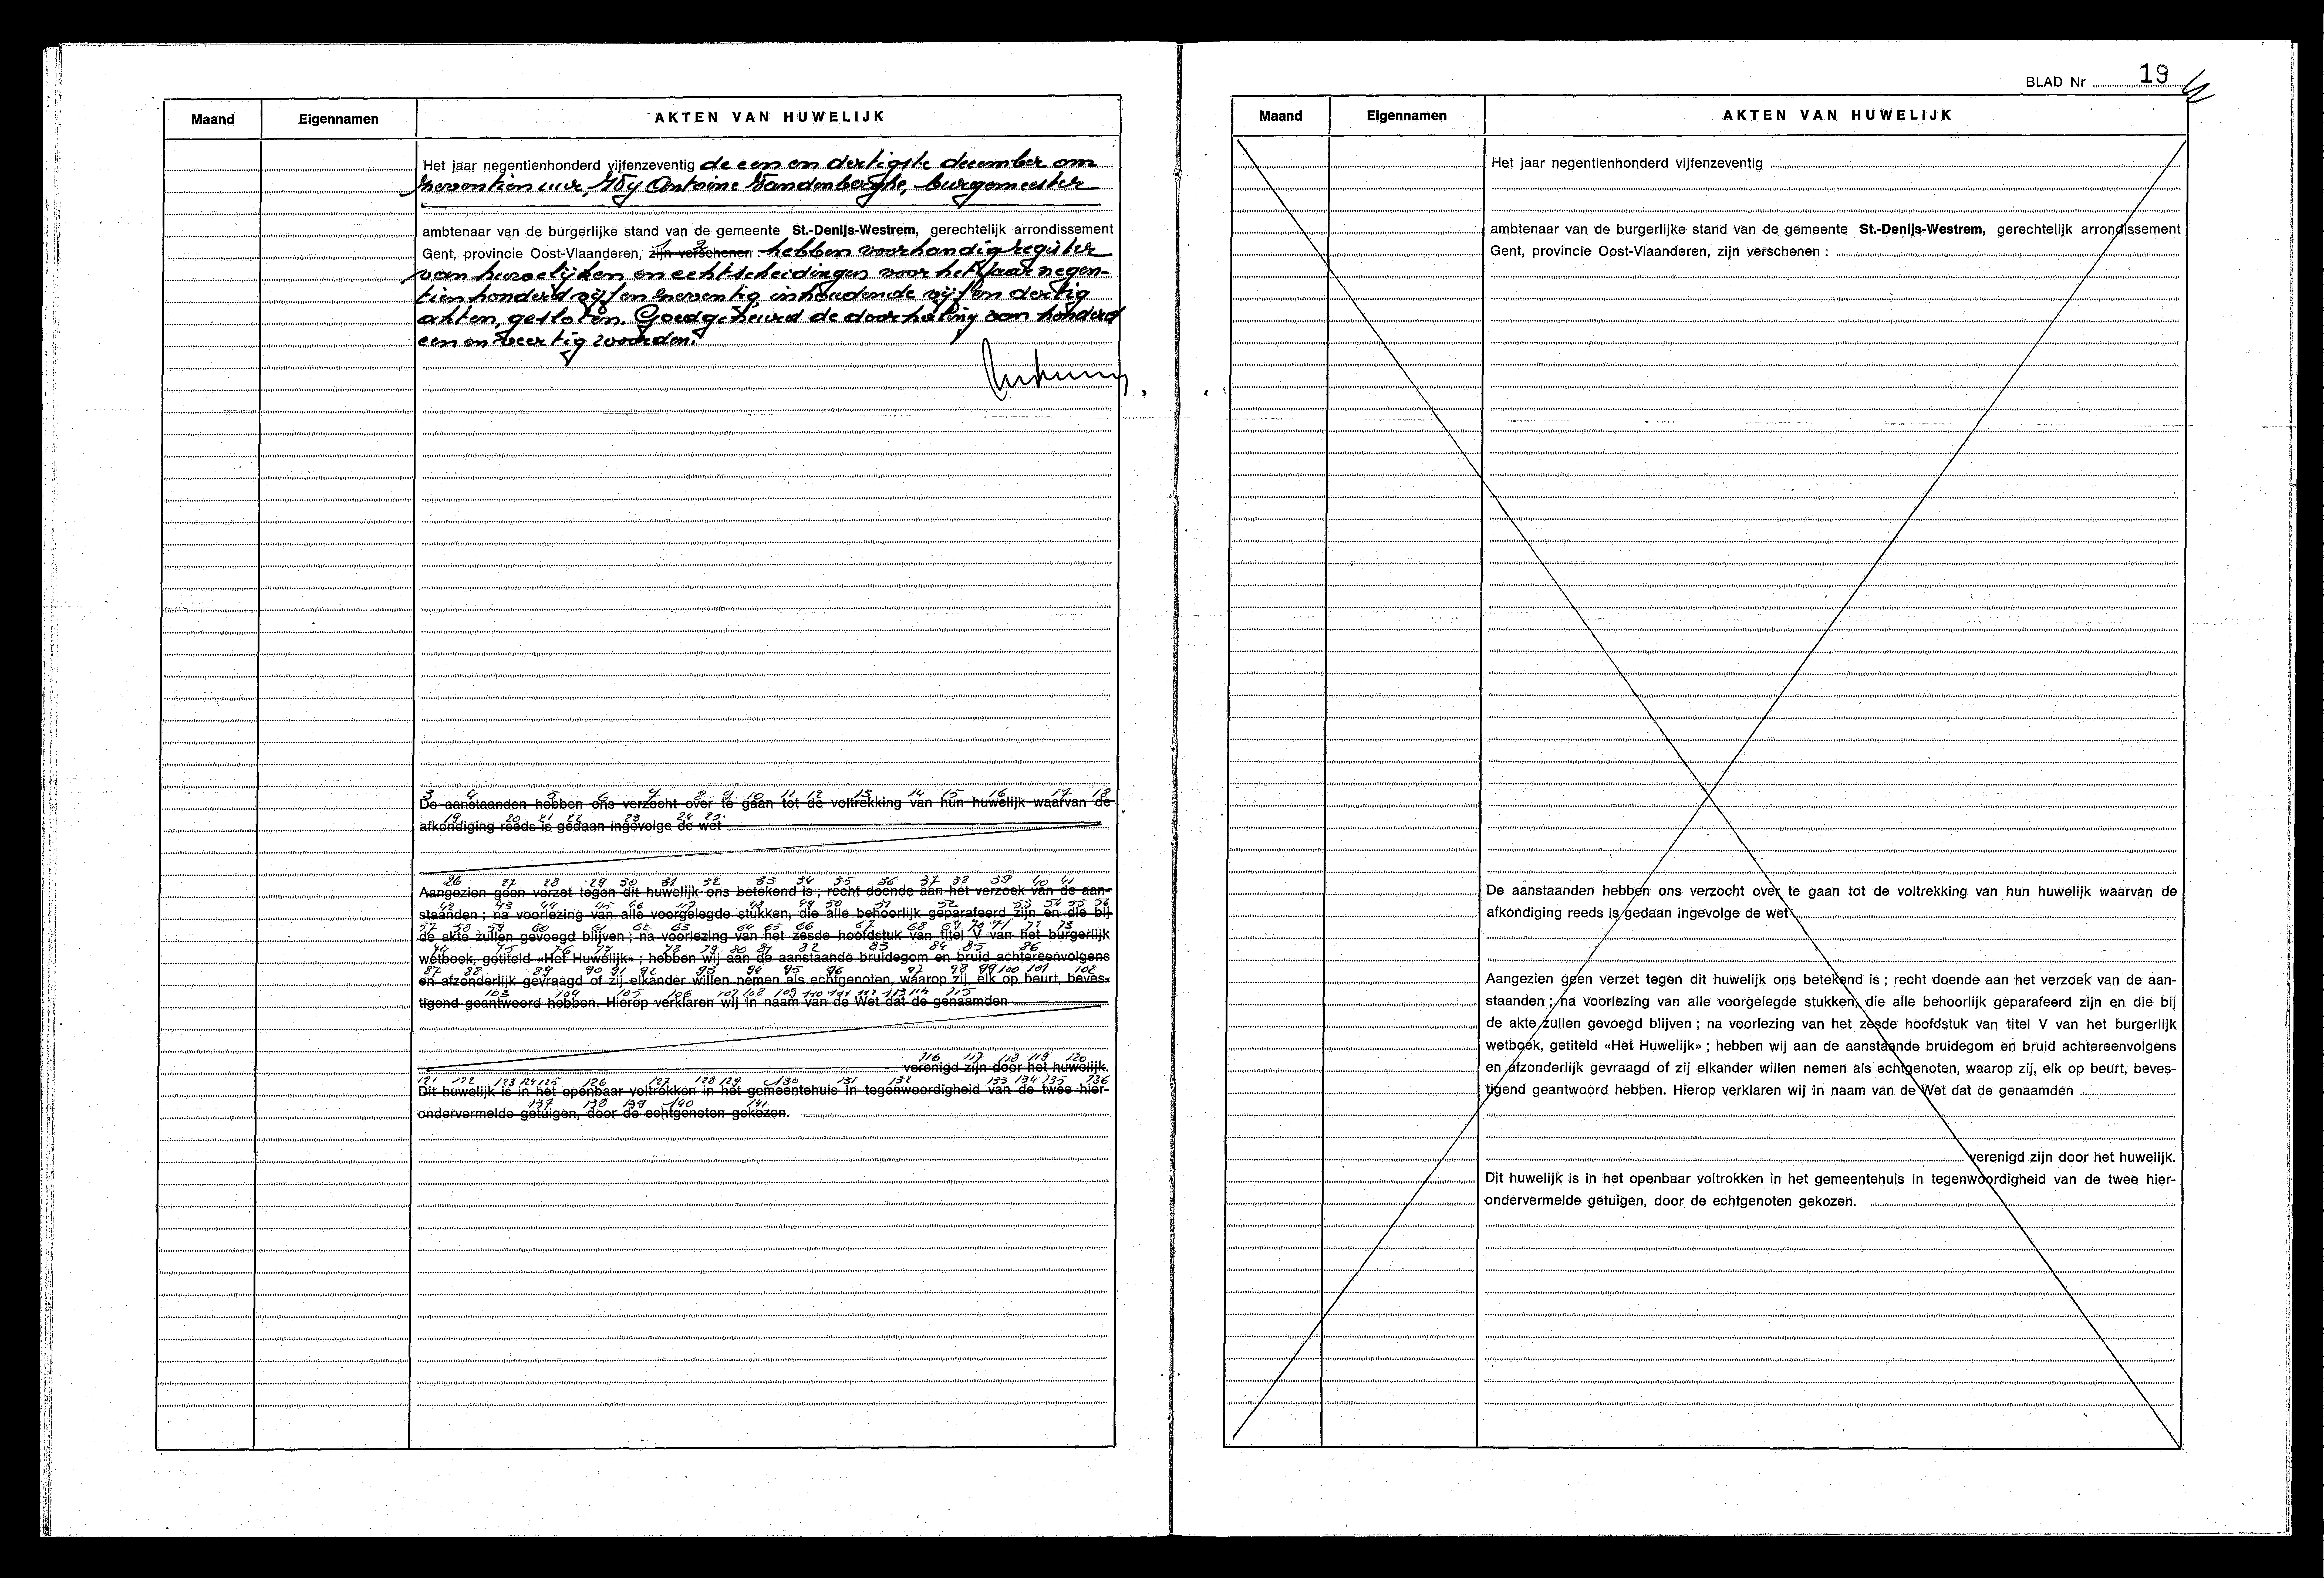 Maand Eigennamen AKTEN VAN HUWELIJK
Het jaar negentienhonderd vijfenzeventig de een en dertigste december om
zeventien uur, Wij Antoine Vandenberghe, burgemeester
ambtenaar van de burgerlijke stand van de gemeente St.-Denijs-Westrem, gerechtelijk arrondissement
1 2
Gent, provincie Oost-Vlaanderen, zijn verschenen : hebben voorhandig register
van huwelijken en echtscheidingen voor het jaar negen-
tien honderd vijf en zeventig inhoudende vijf en dertig
akten, gesloten. Goedgekeurd de doorhaling van honderd
een en veertig woorden.
3 4 5 6 7 8 9 10 11 12 13 14 15 16 17 18
De aanstaanden hebben ons verzocht over te gaan tot de voltrekking van hun huwelijk waarvan de
19 20 21 22 23 24 25
afkondiging reeds is gedaan ingevolge de wet
26 27 28 29 30 31 32 33 34 35 36 37 38 39 40 41
Aangezien geen verzet tegen dit huwelijk ons betekend is ; recht doende aan het verzoek van de aan-
42 43 44 45 46 47 48 49 50 51 52 53 54 55 56
staanden ; na voorlezing van alle voorgelegde stukken, die alle behoorlijk geparafeerd zijn en die bij
57 58 59 60 61 62 63 64 65 66 67 68 69 70 71 72 73
de akte zullen gevoegd blijven ; na voorlezing van het zesde hoofdstuk van titel V van het burgerlijk
74 75 76 77 78 79 80 81 82 83 84 85 86
wetboek, getiteld «Het Huwelijk» ; hebben wij aan de aanstaande bruidegom en bruid achtereenvolgens
87 88 89 90 91 92 93 94 95 96 97 98 99 100 101 102
en afzonderlijk gevraagd of zij elkander willen nemen als echtgenoten, waarop zij, elk op beurt, beves-
103 104 105 106 107 108 109 110 111 112 113 114 115
tigend geantwoord hebben. Hierop verklaren wij in naam van de Wet dat de genaamden
116 117 118 119 120
verenigd zijn door het huwelijk.
121 122 123 124 125 126 127 128 129 130 131 132 133 134 135 136
Dit huwelijk is in het openbaar voltrokken in het gemeentehuis in tegenwoordigheid van de twee hier-
137 138 139 140 141
ondervermelde getuigen, door de echtgenoten gekozen.
BLAD Nr 19
Maand Eigennamen AKTEN VAN HUWELIJK
Het jaar negentienhonderd vijfenzeventig
ambtenaar van de burgerlijke stand van de gemeente St.-Denijs-Westrem, gerechtelijk arrondissement
Gent, provincie Oost-Vlaanderen, zijn verschenen :
De aanstaanden hebben ons verzocht over te gaan tot de voltrekking van hun huwelijk waarvan de
afkondiging reeds is gedaan ingevolge de wet
Aangezien geen verzet tegen dit huwelijk ons betekend is ; recht doende aan het verzoek van de aan-
staanden ; na voorlezing van alle voorgelegde stukken, die alle behoorlijk geparafeerd zijn en die bij
de akte zullen gevoegd blijven ; na voorlezing van het zesde hoofdstuk van titel V van het burgerlijk
wetboek, getiteld «Het Huwelijk» ; hebben wij aan de aanstaande bruidegom en bruid achtereenvolgens
en afzonderlijk gevraagd of zij elkander willen nemen als echtgenoten, waarop zij, elk op beurt, beves-
tigend geantwoord hebben. Hierop verklaren wij in naam van de Wet dat de genaamden
verenigd zijn door het huwelijk.
Dit huwelijk is in het openbaar voltrokken in het gemeentehuis in tegenwoordigheid van de twee hier-
ondervermelde getuigen, door de echtgenoten gekozen.